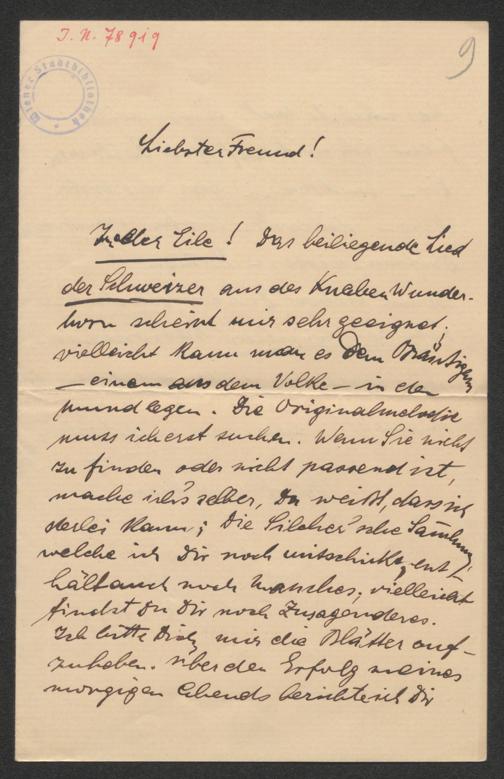 I. N. 78919
9
Wiener Stadtbibliothek
Liebster Freund!
In der Eile! Das beiliegende Lied
der Schweizer aus des Knaben Wunder-
horn scheint mir sehr geeignet,
vielleicht kann man es dem Bräutigam
– einem aus dem Volke – in den
mund legen. Die Originalmelodie
muss ich erst suchen. Wenn Sie nicht
zu finden oder nicht passend ist,
mache ich's selber, Du weißt, dass ich
derlei kann; Die Silcher'sche Sammlung,
welche ich Dir noch mitschicke, ent-
hält auch noch manches, vielleicht
findest Du Dir noch Zusagenderes.
Ich bitte Dich, mir die Blätter auf-
zuheben. Über den Erfolg meines
morgigen Abends berichte ich Dir